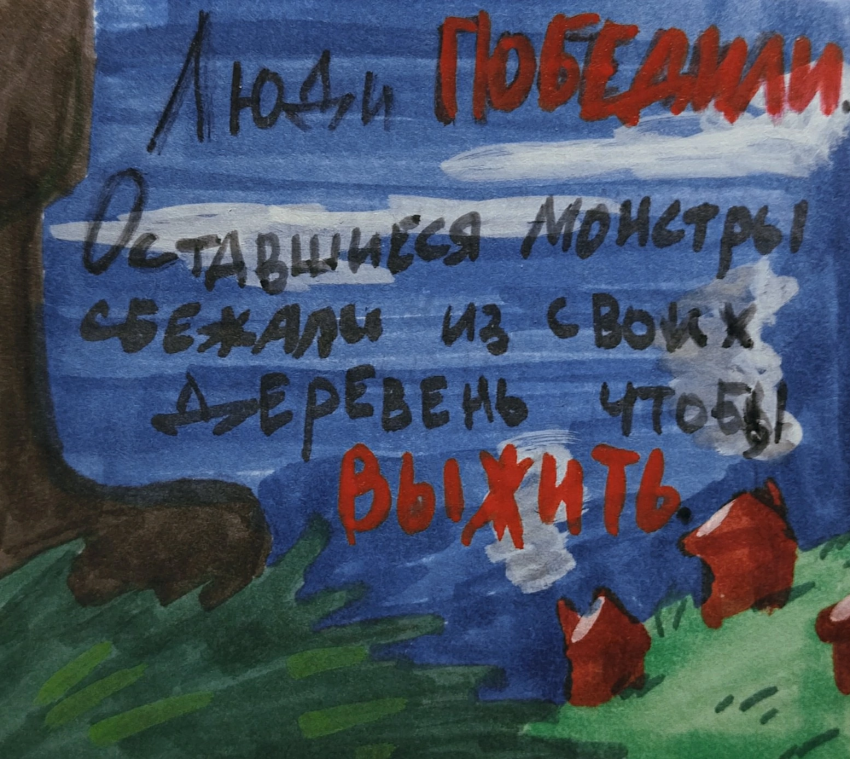 Люди ПОБЕДИЛИ.
Оставшиеся монстры
сбежали из своих
деревень чтобы
ВЫЖИТЬ.